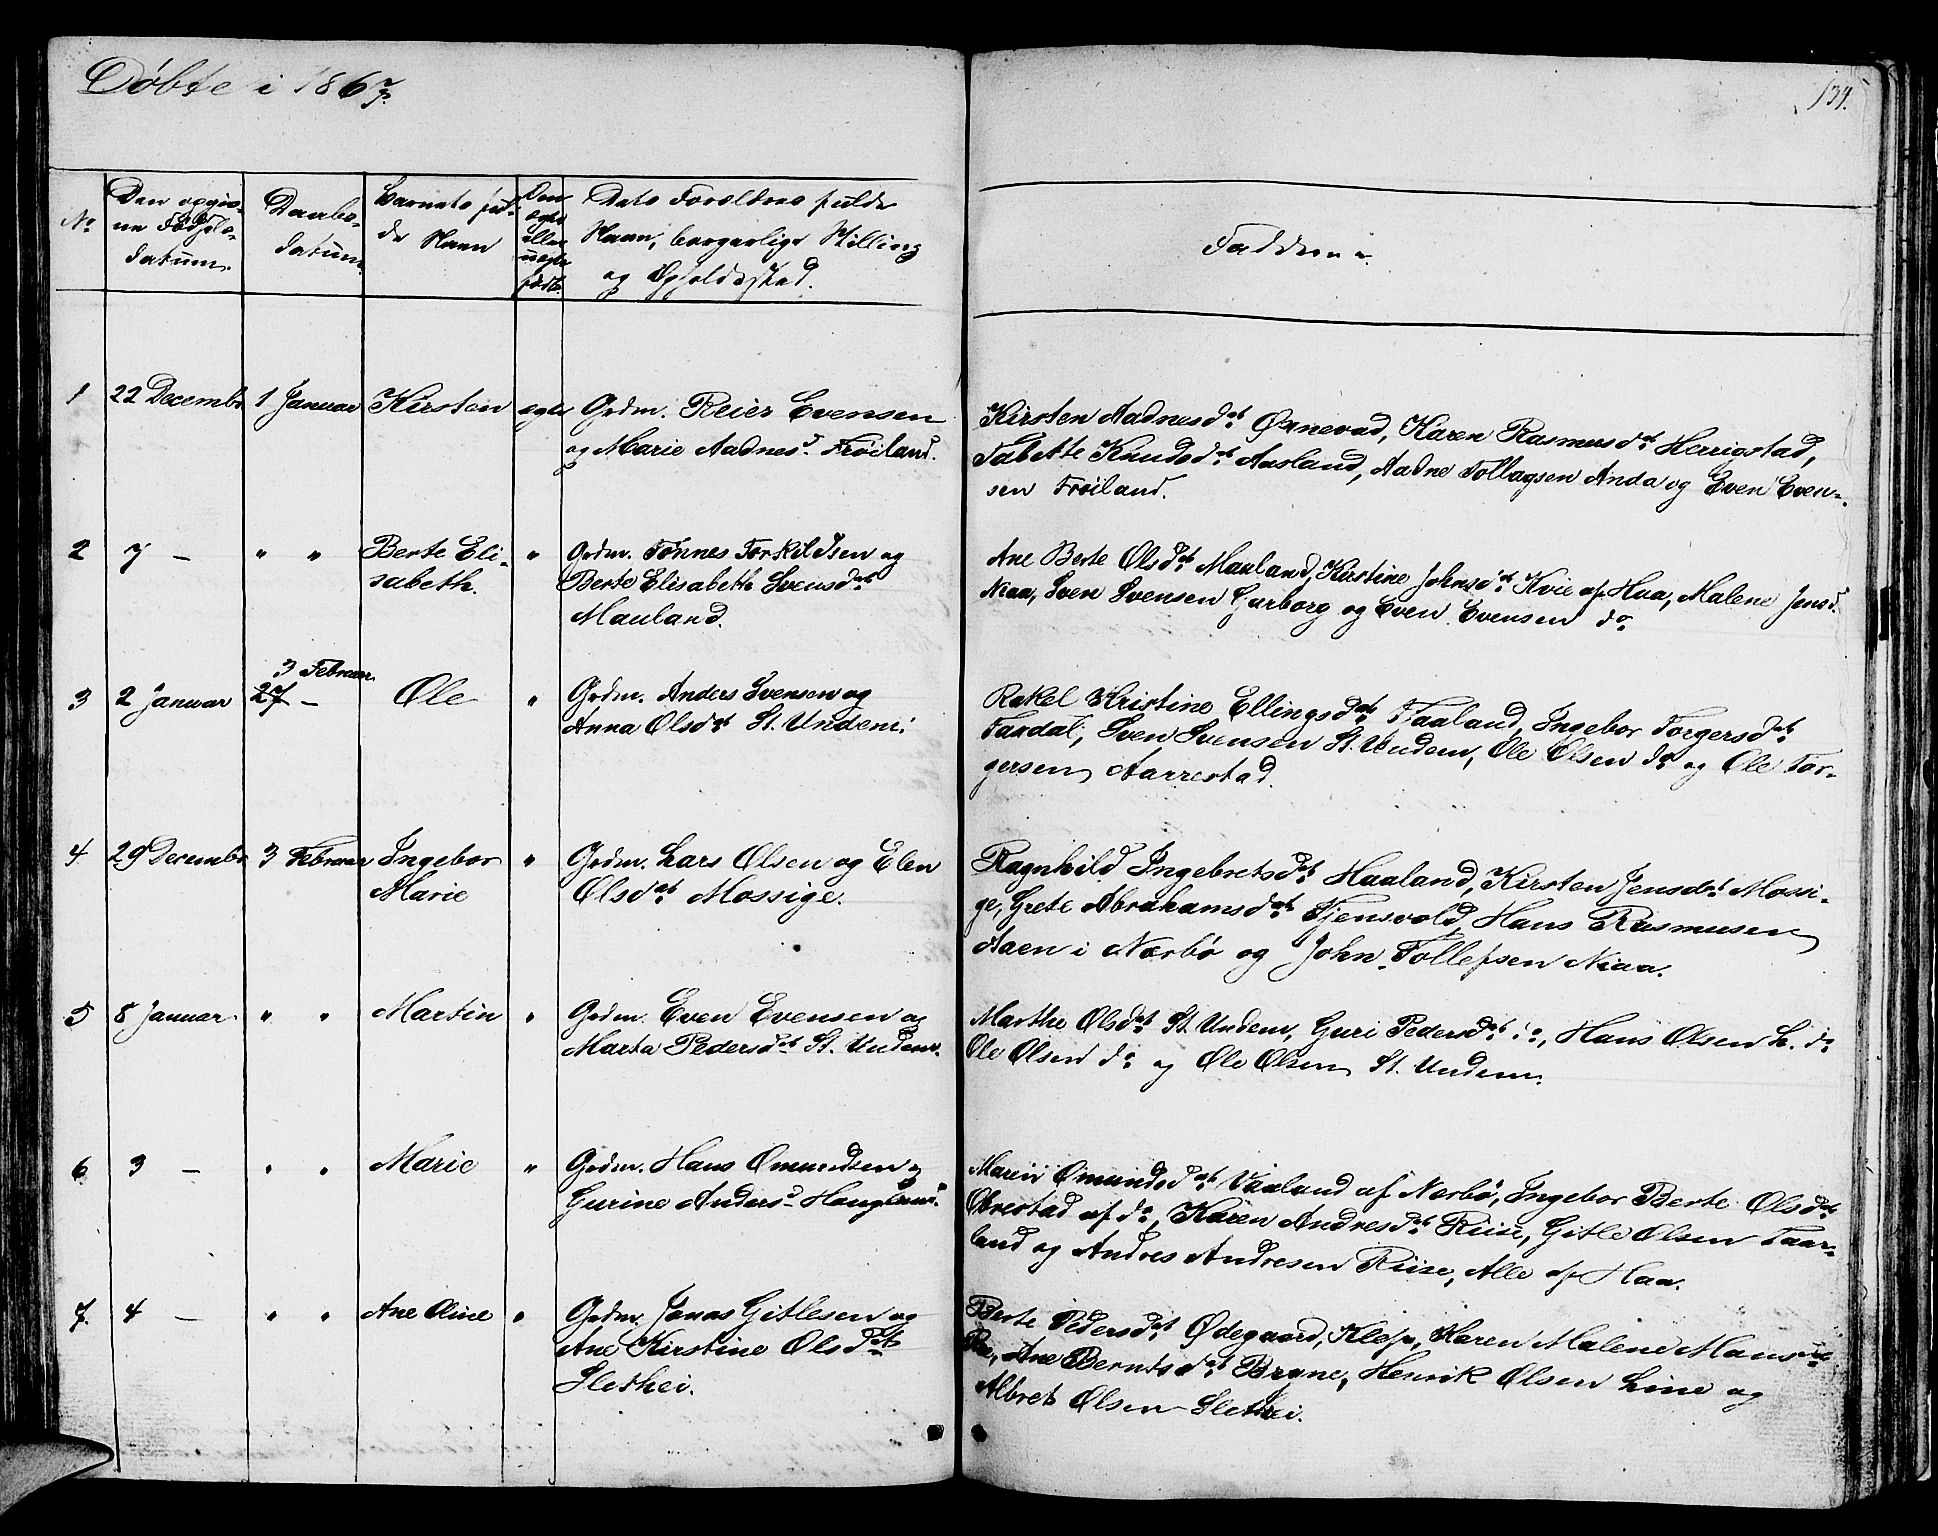 Døbte i 1867.
134.
No
Den opgiv-
ne Fødsels-
datum.
Daabs-
datum.
Barnets ful-
de Navn
Om
ægte
eller
uægte
født.
Dets Forældres fulde
Navn, borgerlige Stilling
og Opholdssted.
Faddere.
1 22 Decembr 1 Januar Kirsten ægte Grdm. Reier Evensen
og Marie Aadnesd. Frøiland.
Kirsten Aadnesdat. Ørnevad, Karen Rasmusdat. Herrigstad,
Tabette Knudsdat. Aasland, Aadne Tollagsen Anda og Even Even-
sen Frøiland.
2 7 — " " Berte Eli- " Grdm. Tønnes Torkildsen og
sabeth. Berte Elisabeth Svensdat
Mauland.
Ane Berte Olsdat. Mauland, Kirstine Johnsdat. Kvie af Haa, Malene Jensd.
Niaa, Sven Svensen Gjarborg og Even Evensen do
3 Februar
3 2 Januar 27 — Ole " Grdm. Anders Svensen og
Anna Olsdat St. Undem.
Rakel Kristine Ellingsdat. Taaland, Ingebor Torgersdat.
Tardal, Sven Svensen St. Undem, Ole Olsen do og Ole Tor-
gersen Aarrestad.
4 29 Decembr 3 Februar Ingebor " Grdm. Lars Olsen og Elen
Marie Olsdat. Mossige.
Ragnhild Ingebretsdat. Haaland, Kirsten Jensdat. Mossi-
ge, Grete Abrahamsdat. Tjensvold, Hans Rasmusen
Aaen i Nærbø og John Tollefsen Niaa.
5 8 Januar. " " Martin " Grdm. Even Evensen og
Marta Pedersdat St. Undem.
Marthe Olsdat. St. Undem, Guri Pedersdat. do, Hans Olsen L. do
Ole Olsen do og Ole Olsen St. Undem.
6 3 — " " Marie " Grdm. Hans Omundsen og
Gurine Andersd. Haugland.
Maren Omundsdat. Vaaland af Nærbø, Ingebor Berte Olsdat.
Obrestad af do, Karen Andresdat. Riise, Gitle Olsen Taar-
land og Andres Andresen Riise, Alle af Haa.
7. 4 — " " Ane Oline " Grdm. Jonas Gitlesen og
Ane Kirstine Olsdat.
Slethei.
Berte Pedersdat. Ødegaard, Klep, Karen Malene Hansdat
Re, Ane Berntsdat. Bryne, Henrik Olsen Line og
Albret Olsen Slethei.